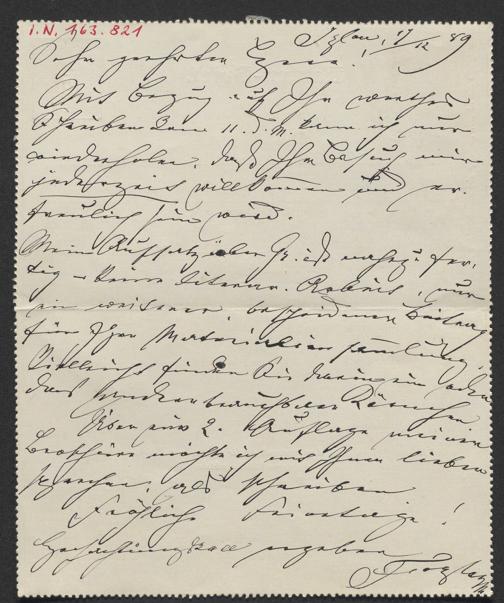 I.N. 163.821
Iglau, 17/12 89
Sehr geehrter Herr!
Mit Bezug auf Ihr werthes
Schreiben vom 11. d. M. kann ich nur
wiederholen, daß Ihr Besuch mir
jederzeit willkommen und er-
freulich sein wird.
Mein Aufsatz über Gr. ist nahezu fer-
tig – keine literar. Arbeit, nur
ein weiterer, bescheidener Beitrag
für Ihre Materialiensammlung.
Vielleicht finden Sie darin ein oder
das andere brauchbare Körnchen.
Über eine 2. Auflage meiner
Brochüre möchte ich mit Ihnen lieber
sprechen, als schreiben
Fröhliche Feiertage!
Hochachtungsvoll ergeben